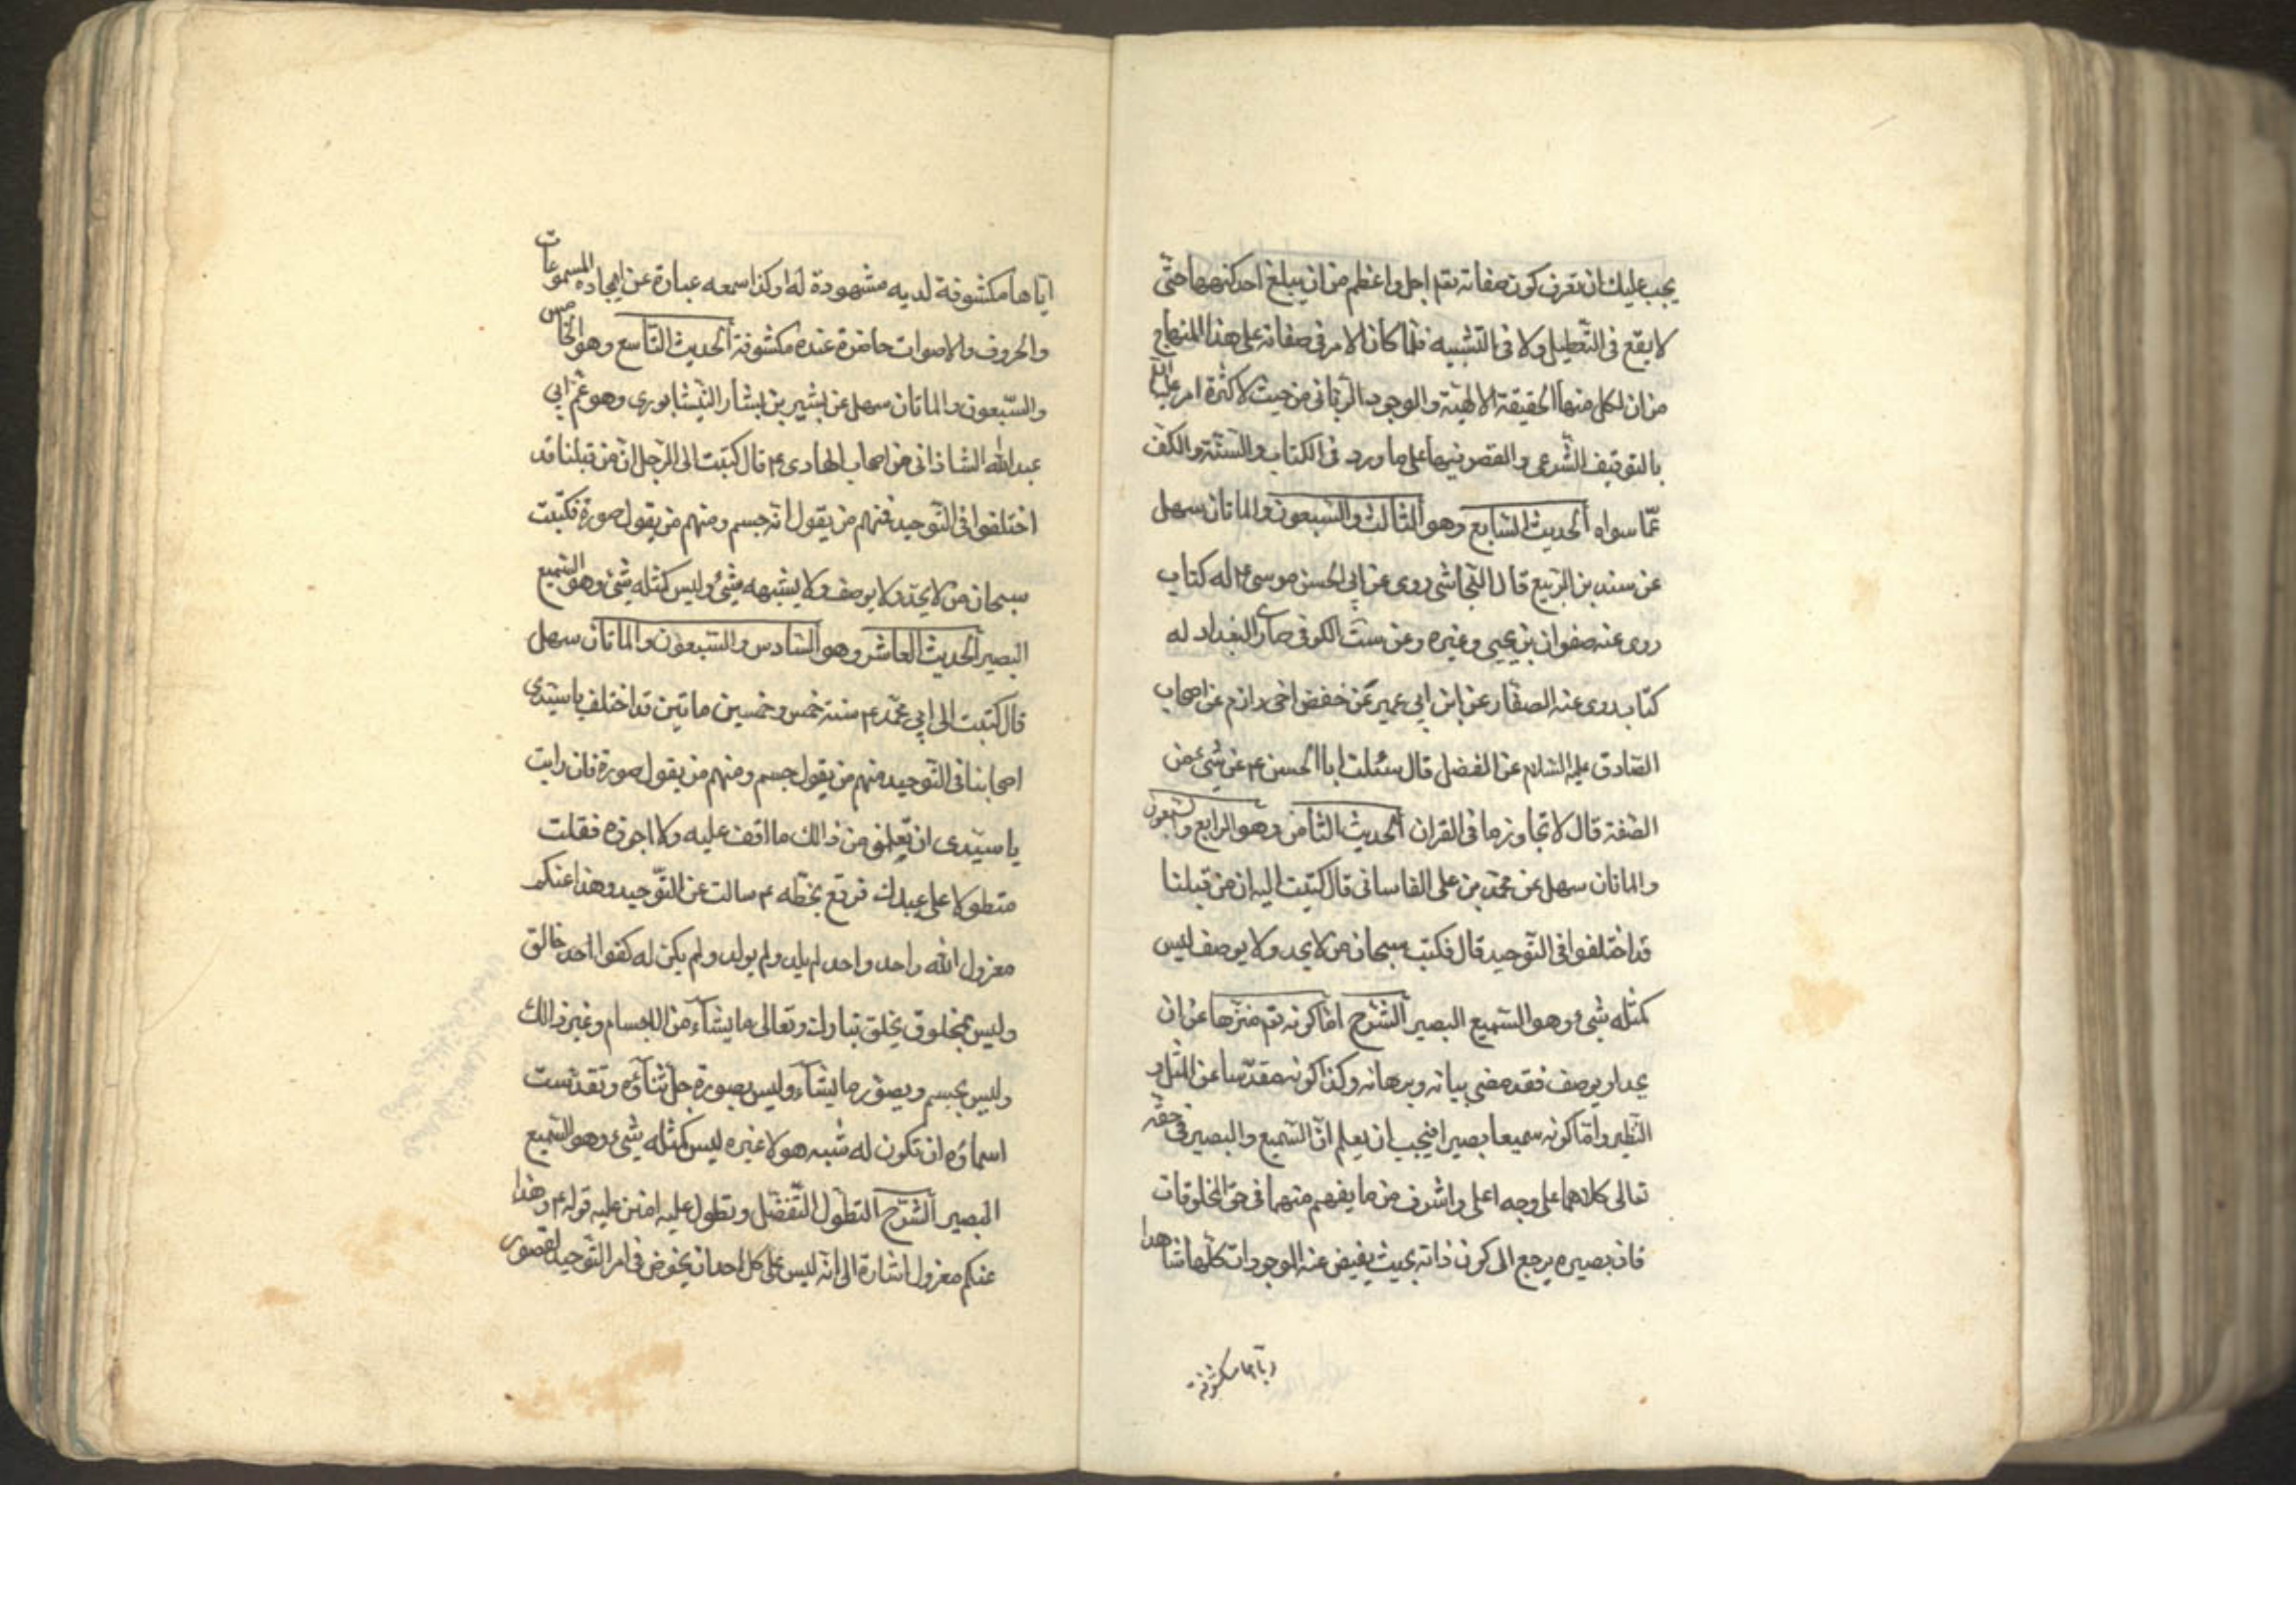 يجب عليك ان تعرف كون صفاته تعم اجل واعظم من ان يبلغ احد كنهها حتّى
لا يقع في التّعطيل ولا في التّشبيه فلما كان الامر في صفاته على هذا المنهاج
من ان لكل منها الحقيقة الالهيّة والوجود الرّبّاني من حيث لا كثرة امر
بالتوقيف الشّرعي والقصر فيها على ما ورد في الكتاب والسّنّة والكفّ
عمّا سواه الحديث السّابع وهو الثّالث والسّبعون والماتان سهل
عن سندي بن الرّبيع قال النّجاشي روى عن ابي الحسن موسى ع له كتاب
روى عنه صفوان بن يحيى وغيره وعن ست الكوفي صار البغداد له
كتاب روى عنه الصفّار عن ابن ابي عمير عن حفص اخي مرازم عن اصحاب
الصّادق عليه السّلام عن المفضل قال سئلت ابا الحسن ع عن شيء من
الصّفة قال لا تجاوز ما في القران الحديث الثّامن وهو الرابع والسّبعون
والماتان سهل عن محمّد بن علي القاساني قال كتبت اليه ان من قبلنا
قد اختلفوا في التّوحيد قال فكتب سبحان من لا يحد ولا يوصف ليس
كمثله شيء وهو السّميع البصير الشّرح امّا كونه تعم منزّها عن ان
يحد او يوصف فقد مضى بيانه وبرهانه وكذا كونه مقدّسا عن المثل و
النّظير وامّا كونه سميعا بصيرا فيجب ان يعلم انّ السّميع والبصير في حقّه
تعالى كلاهما على وجه اعلى واشرف من ما يفهم منهما في حق المخلوقات
فان بصيره يرجع الى كون ذاته بحيث يفيض عنه الموجودات كلّها شاهدا
ايّاها مكشوفة
ايّاها مكشوفة لديه مشهودة له وكذا سمعه عبارة عن ايجاده المسموعات
والحروف والاصوات حاضرة عنده مكشوفة الحديث التّاسع وهو الخامس
والسّبعون والماتان سهل عن بشير بن بشار النّيشابوري وهو عم ابي
عبد الله الشاذاني من اصحاب الهادي ع قال كتبت الى الرّجل انّ من قبلنا قد
اختلفوا في التّوحيد فمنهم من يقول انّه جسم ومنهم من يقول صورة فكتبت
سبحان من لا يحدّ ولا يوصف ولا يشبهه شيء وليس كمثله شيء وهو السّميع
البصير الحديث العاشر وهو السّادس والسّبعون والماتان سهل
قال كتبت الى ابي محمّد ع سنة خمس وخمسين ماتين قد اختلف يا سيّدي
اصحابنا في التّوحيد منهم من يقول جسم ومنهم من يقول صورة فان رايت
يا سيّدي ان تعلّمني من ذالك ما اقف عليه ولا اجوزه فقلت
متطولا على عبدك فوقّع بخطّه ع سالت عن التّوحيد وهذا عنكم
معزول الله واحد واحد لم يلد ولم يولد ولم يكن له كفوا احد خالق
وليس بمخلوق يخلق تبارك وتعالى ما يشآء من الاجسام وغير ذالك
وليس بجسم ويصوّر ما يشآء وليس بصورة جلّ ثنآؤه وتقدّست
اسماؤه ان تكون له شبه هو لا غيره ليس كمثله شيء وهو السّميع
البصير الشّرح التطوّل التّفضّل وتطول عليه امتن عليه قوله ع وهذا
عنكم معزول اشارة الى انّه ليس على كل احد ان يخوض في امر التّوحيد لقصور